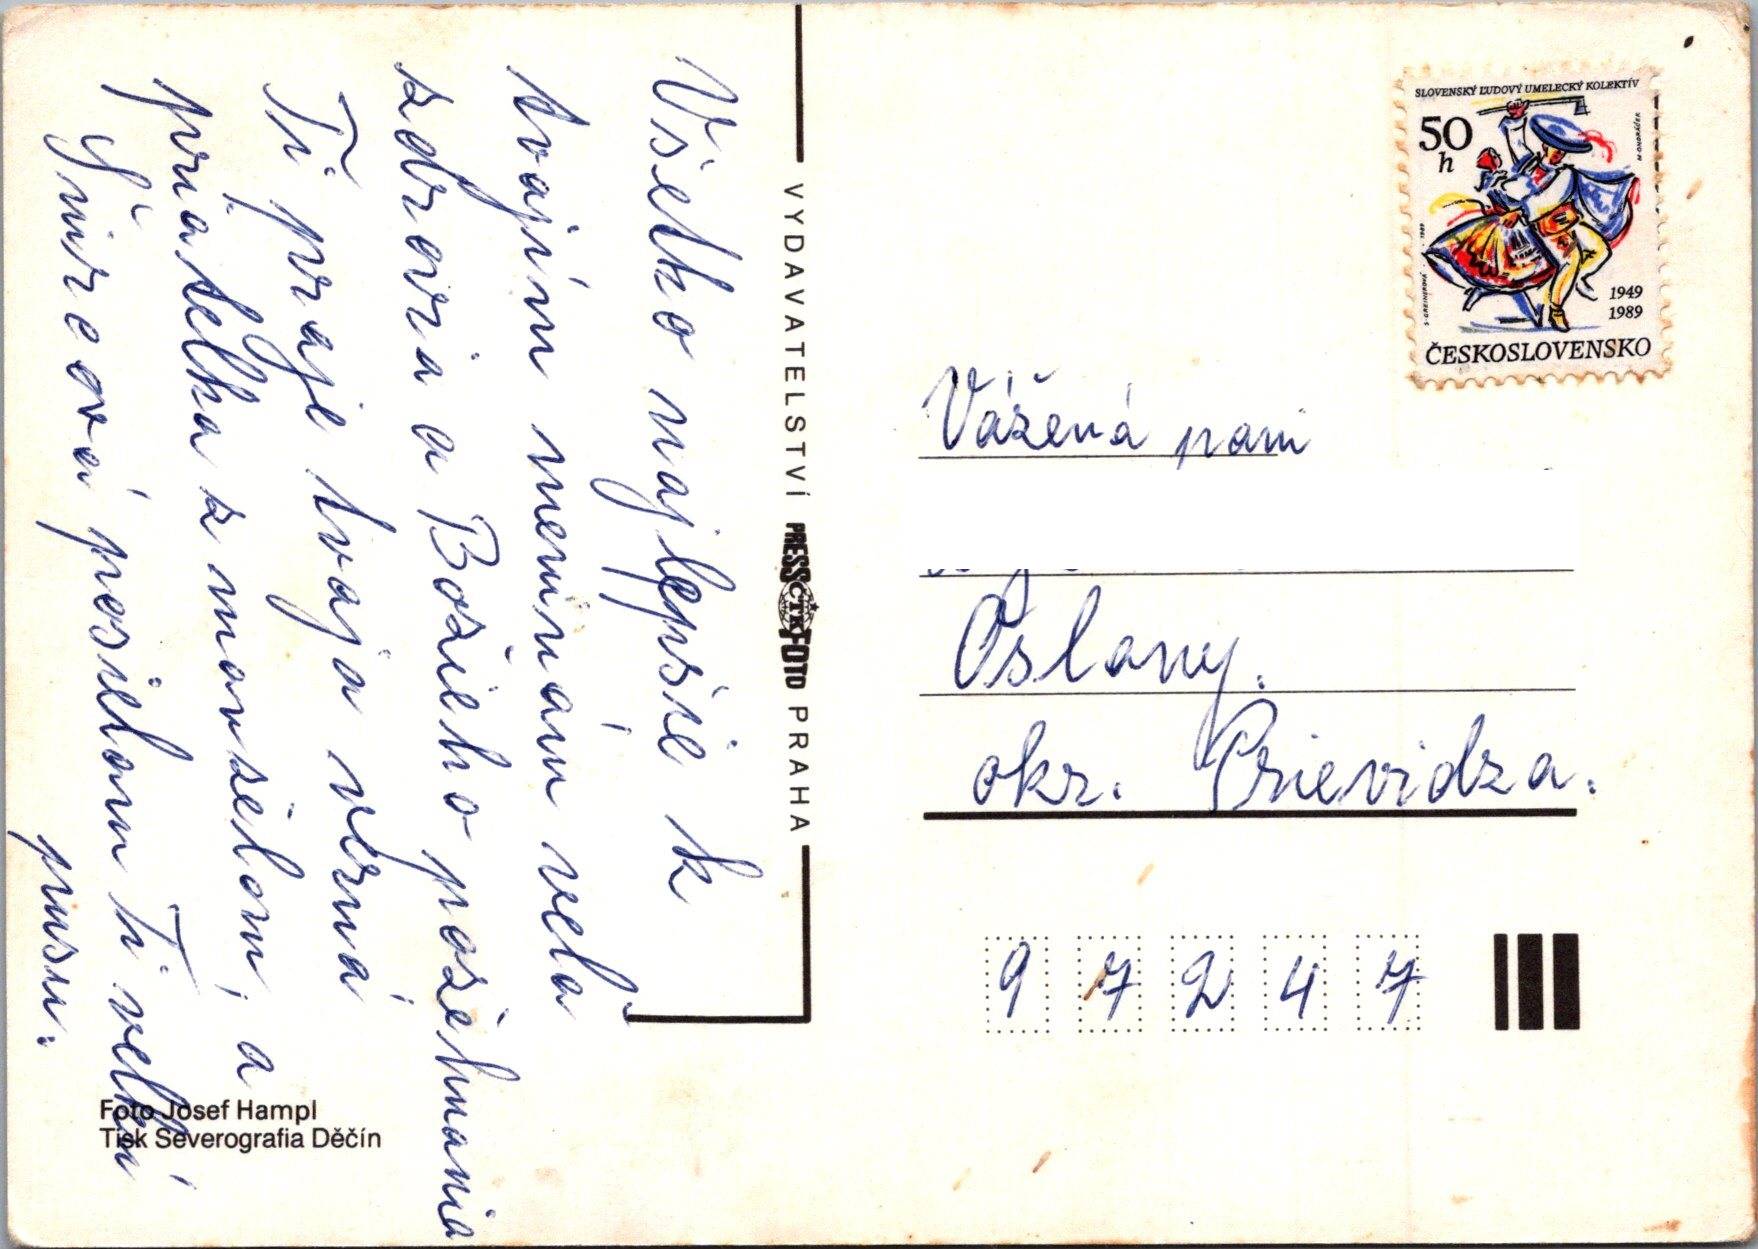 Všetko najlepšie k
tvojím meninám vela
zdravia a Božieho požehnania
Ti praje tvoja verná
priatelka z manželom, a
posielam Ti velkú
pusu.
VYDAVATELSTVÍ PRESSFOTO PRAHA
ČTK
Foto Josef Hampl
Tisk Severografia Děčín
SLOVENSKÝ ĽUDOVÝ UMELECKÝ KOLEKTÍV
50
h
M. ONDRÁČEK
1949
1989
ČESKOSLOVENSKO
Vážená pani
Oslany.
okr. Prievidza.
9 7 2 4 7